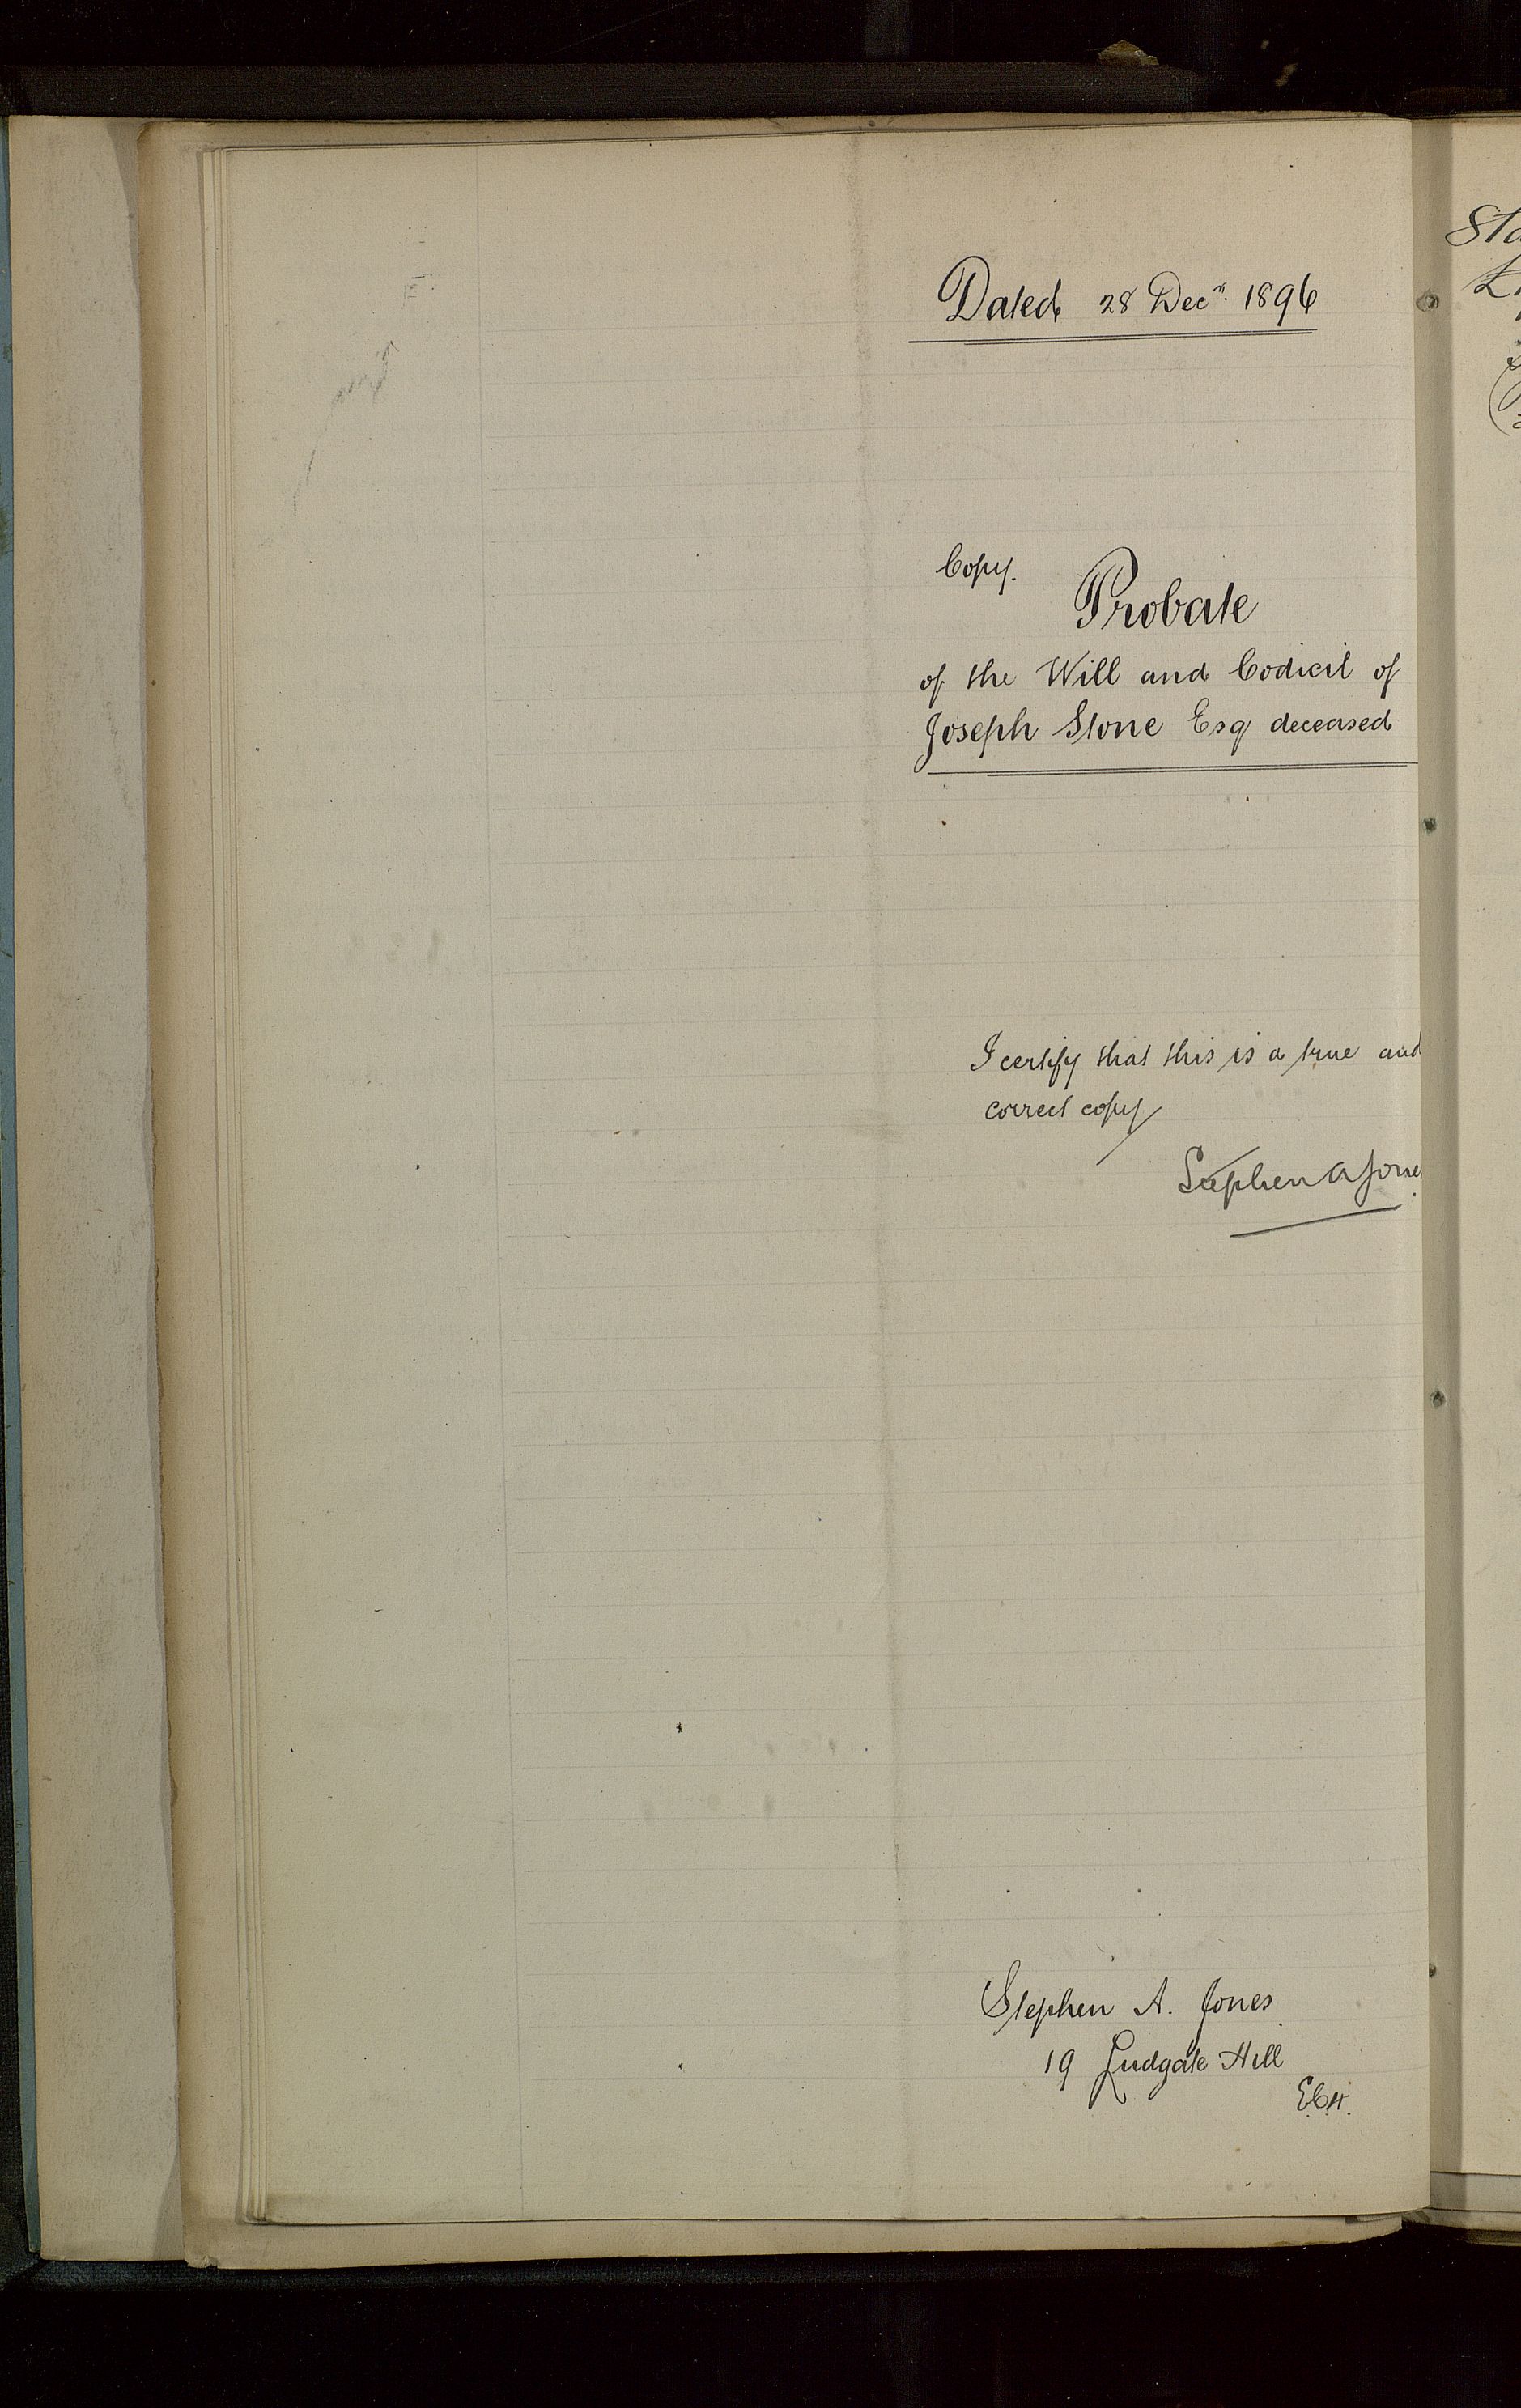 Dated 28 Decr. 1896
Copy.
Probate
of the Will and Codicil of
Joseph Stone Esq deceased
I certify that this is a true and
correct copy
Stephen A Jones
Stephen A. Jones
19 Ludgate Hill